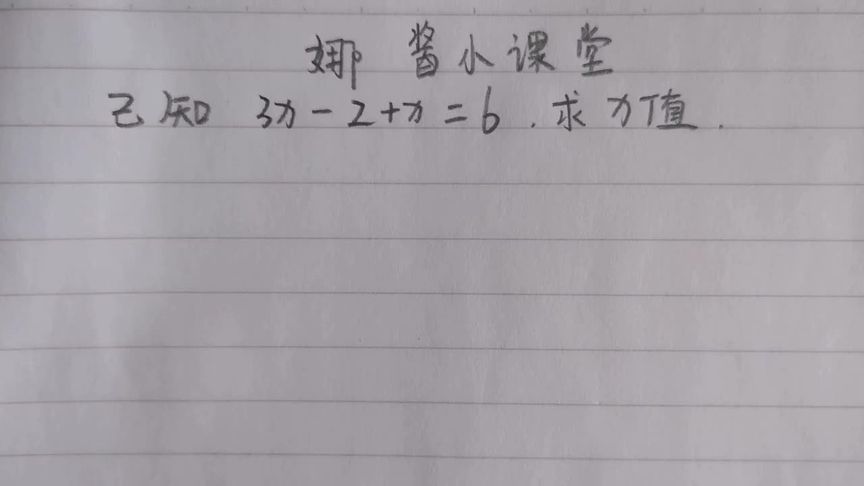 娜酱小课堂
已知 3x-2+x=6.求x值.